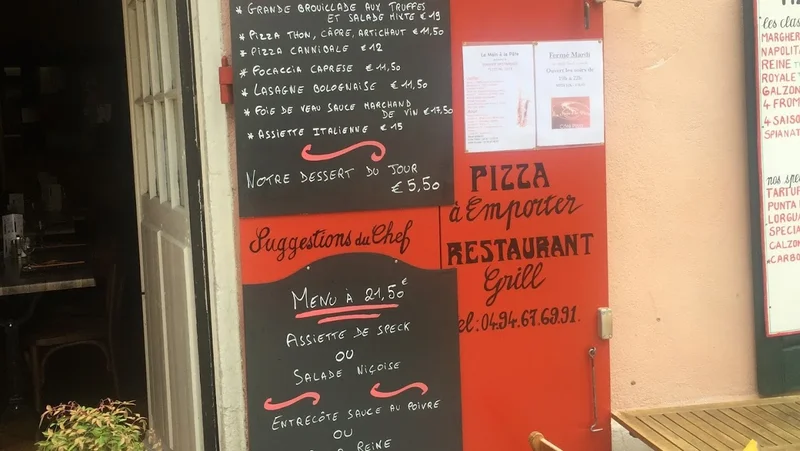 * GRANDE BROUILLADE AUX TRUFFES
ET SALADE MIXTE €19
* PIZZA THON, CÂPRE, ARTICHAUT €11,50
* PIZZA CANNIBALE €12
* FOCACCIA CAPRESE €11,50
* LASAGNE BOLOGNAISE €11,50
* FOIE DE VEAU SAUCE MARCHAND
DE VIN €17,50
* ASSIETTE ITALIENNE €15
NOTRE DESSERT DU JOUR
€5,50
Suggestions du Chef
MENU À 21,50€
ASSIETTE DE SPECK
OU
SALADE NIÇOISE
ENTRECÔTE SAUCE AU POIVRE
OU
REINE
Fermé Mardi
PIZZA
à Emporter
RESTAURANT
Grill
el: 04.94.67.69.91.
les clas
MARGHER
NAPOLITA
REINE
ROYALE
CALZON
4 FROM
4 SAISO
SPIANAT
nos spe
TARTUF
PUNTA
LORGUA
SPECIA
CALZON
*CARBO